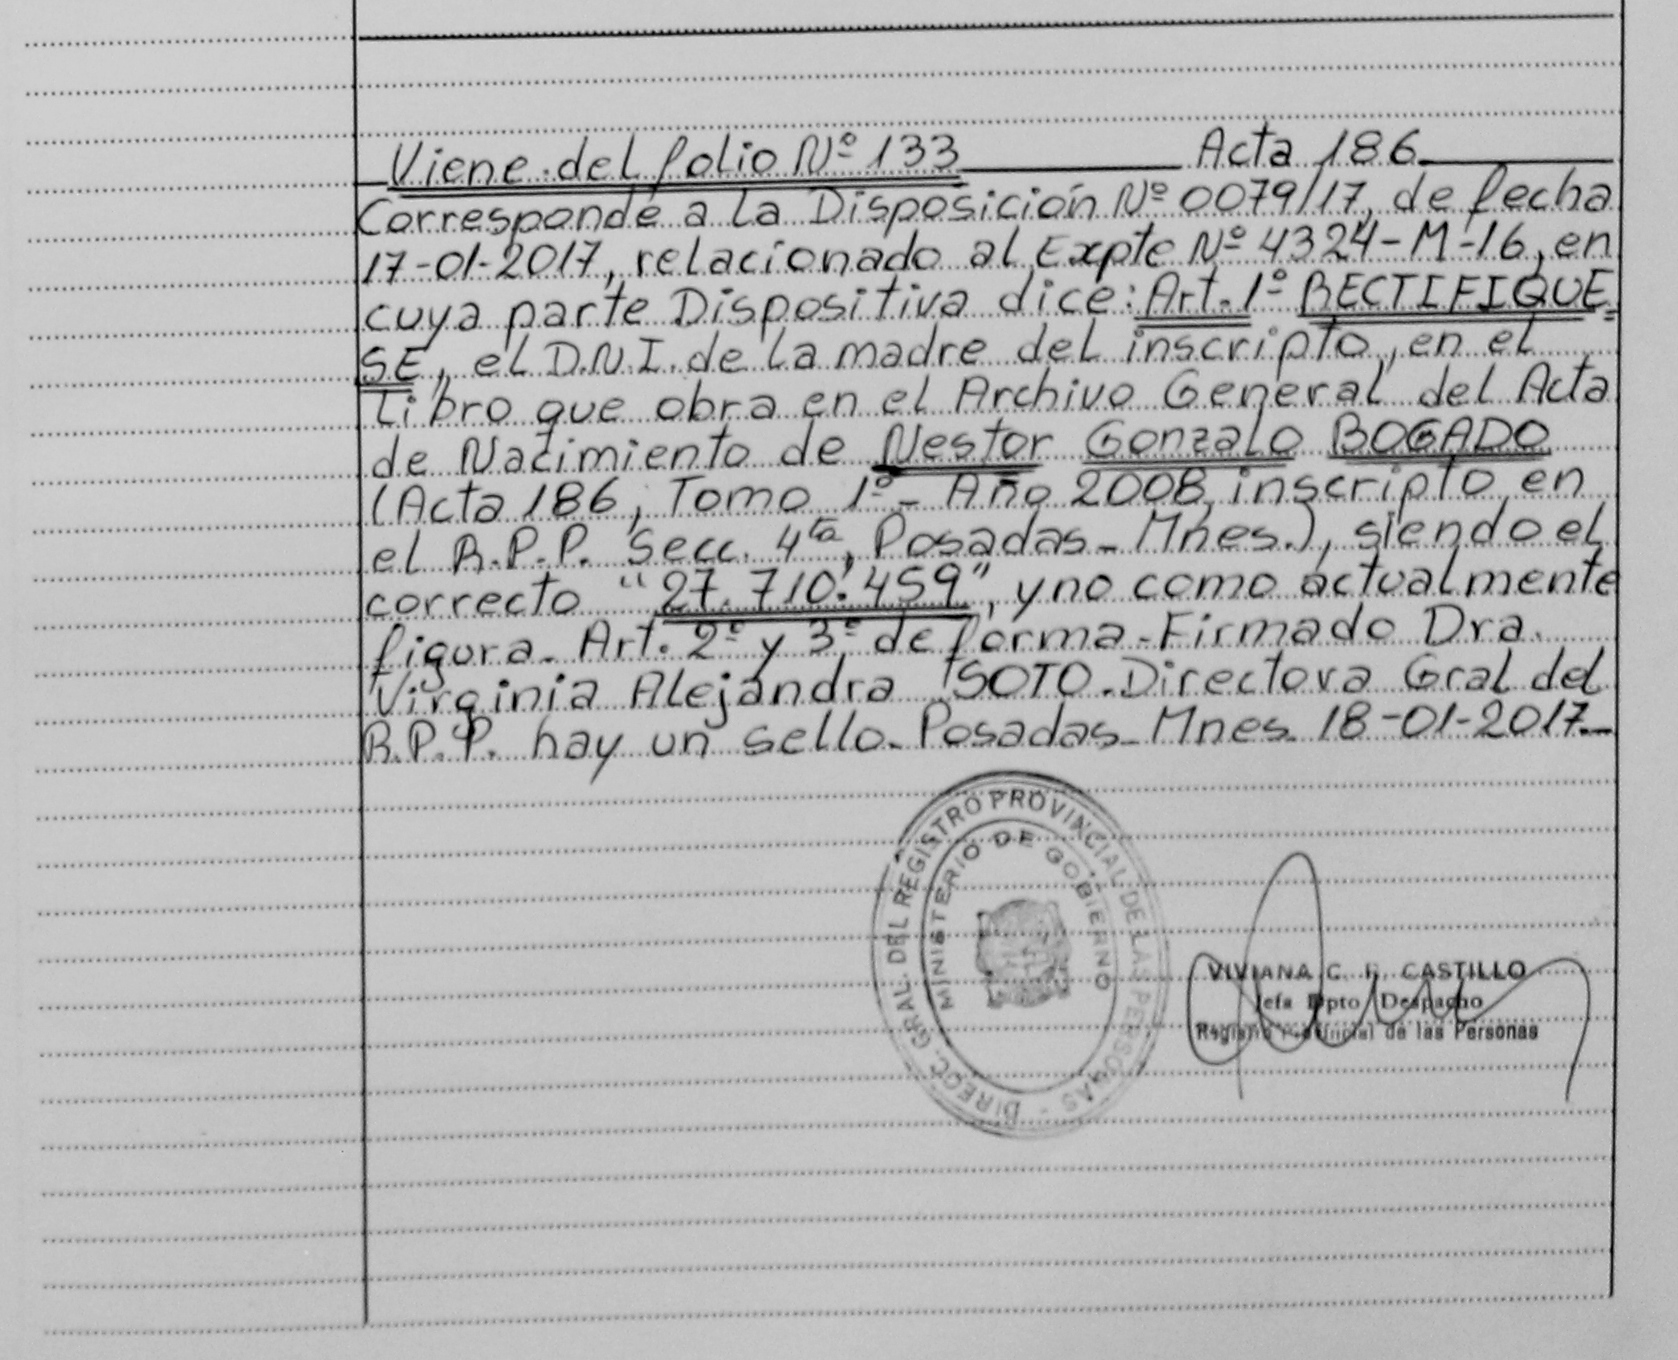 Viene del folio Nº 133 Acta 186
Corresponde a la Disposición Nº 0079/17, de fecha
17-01-2017, relacionado al Expte Nº 4324-M-16, en
cuya parte Dispositiva dice: Art. 1º RECTIFIQUE=
SE, el D.N.I. de la madre del inscripto, en el
Libro que obra en el Archivo General del Acta
de Nacimiento de Nestor Gonzalo BOGADO
(Acta 186, Tomo 1º- Año 2008, inscripto en
el R.P.P. Secc. 4ta, Posadas- Mnes.), siendo el
correcto "27.710.459", y no como actualmente
figura. Art. 2º y 3º de forma-Firmado Dra.
Virginia Alejandra SOTO-Directora Gral del
R.P.P. hay un sello-Posadas-Mnes. 18-01-2017.-
DIRECC. GRAL. DEL REGISTRO PROVINCIAL DE LAS PERSONAS -
MINISTERIO DE GOBIERNO
VIVIANA C. CASTILLO
Jefa Dpto Despacho
Registro Provincial de las Personas